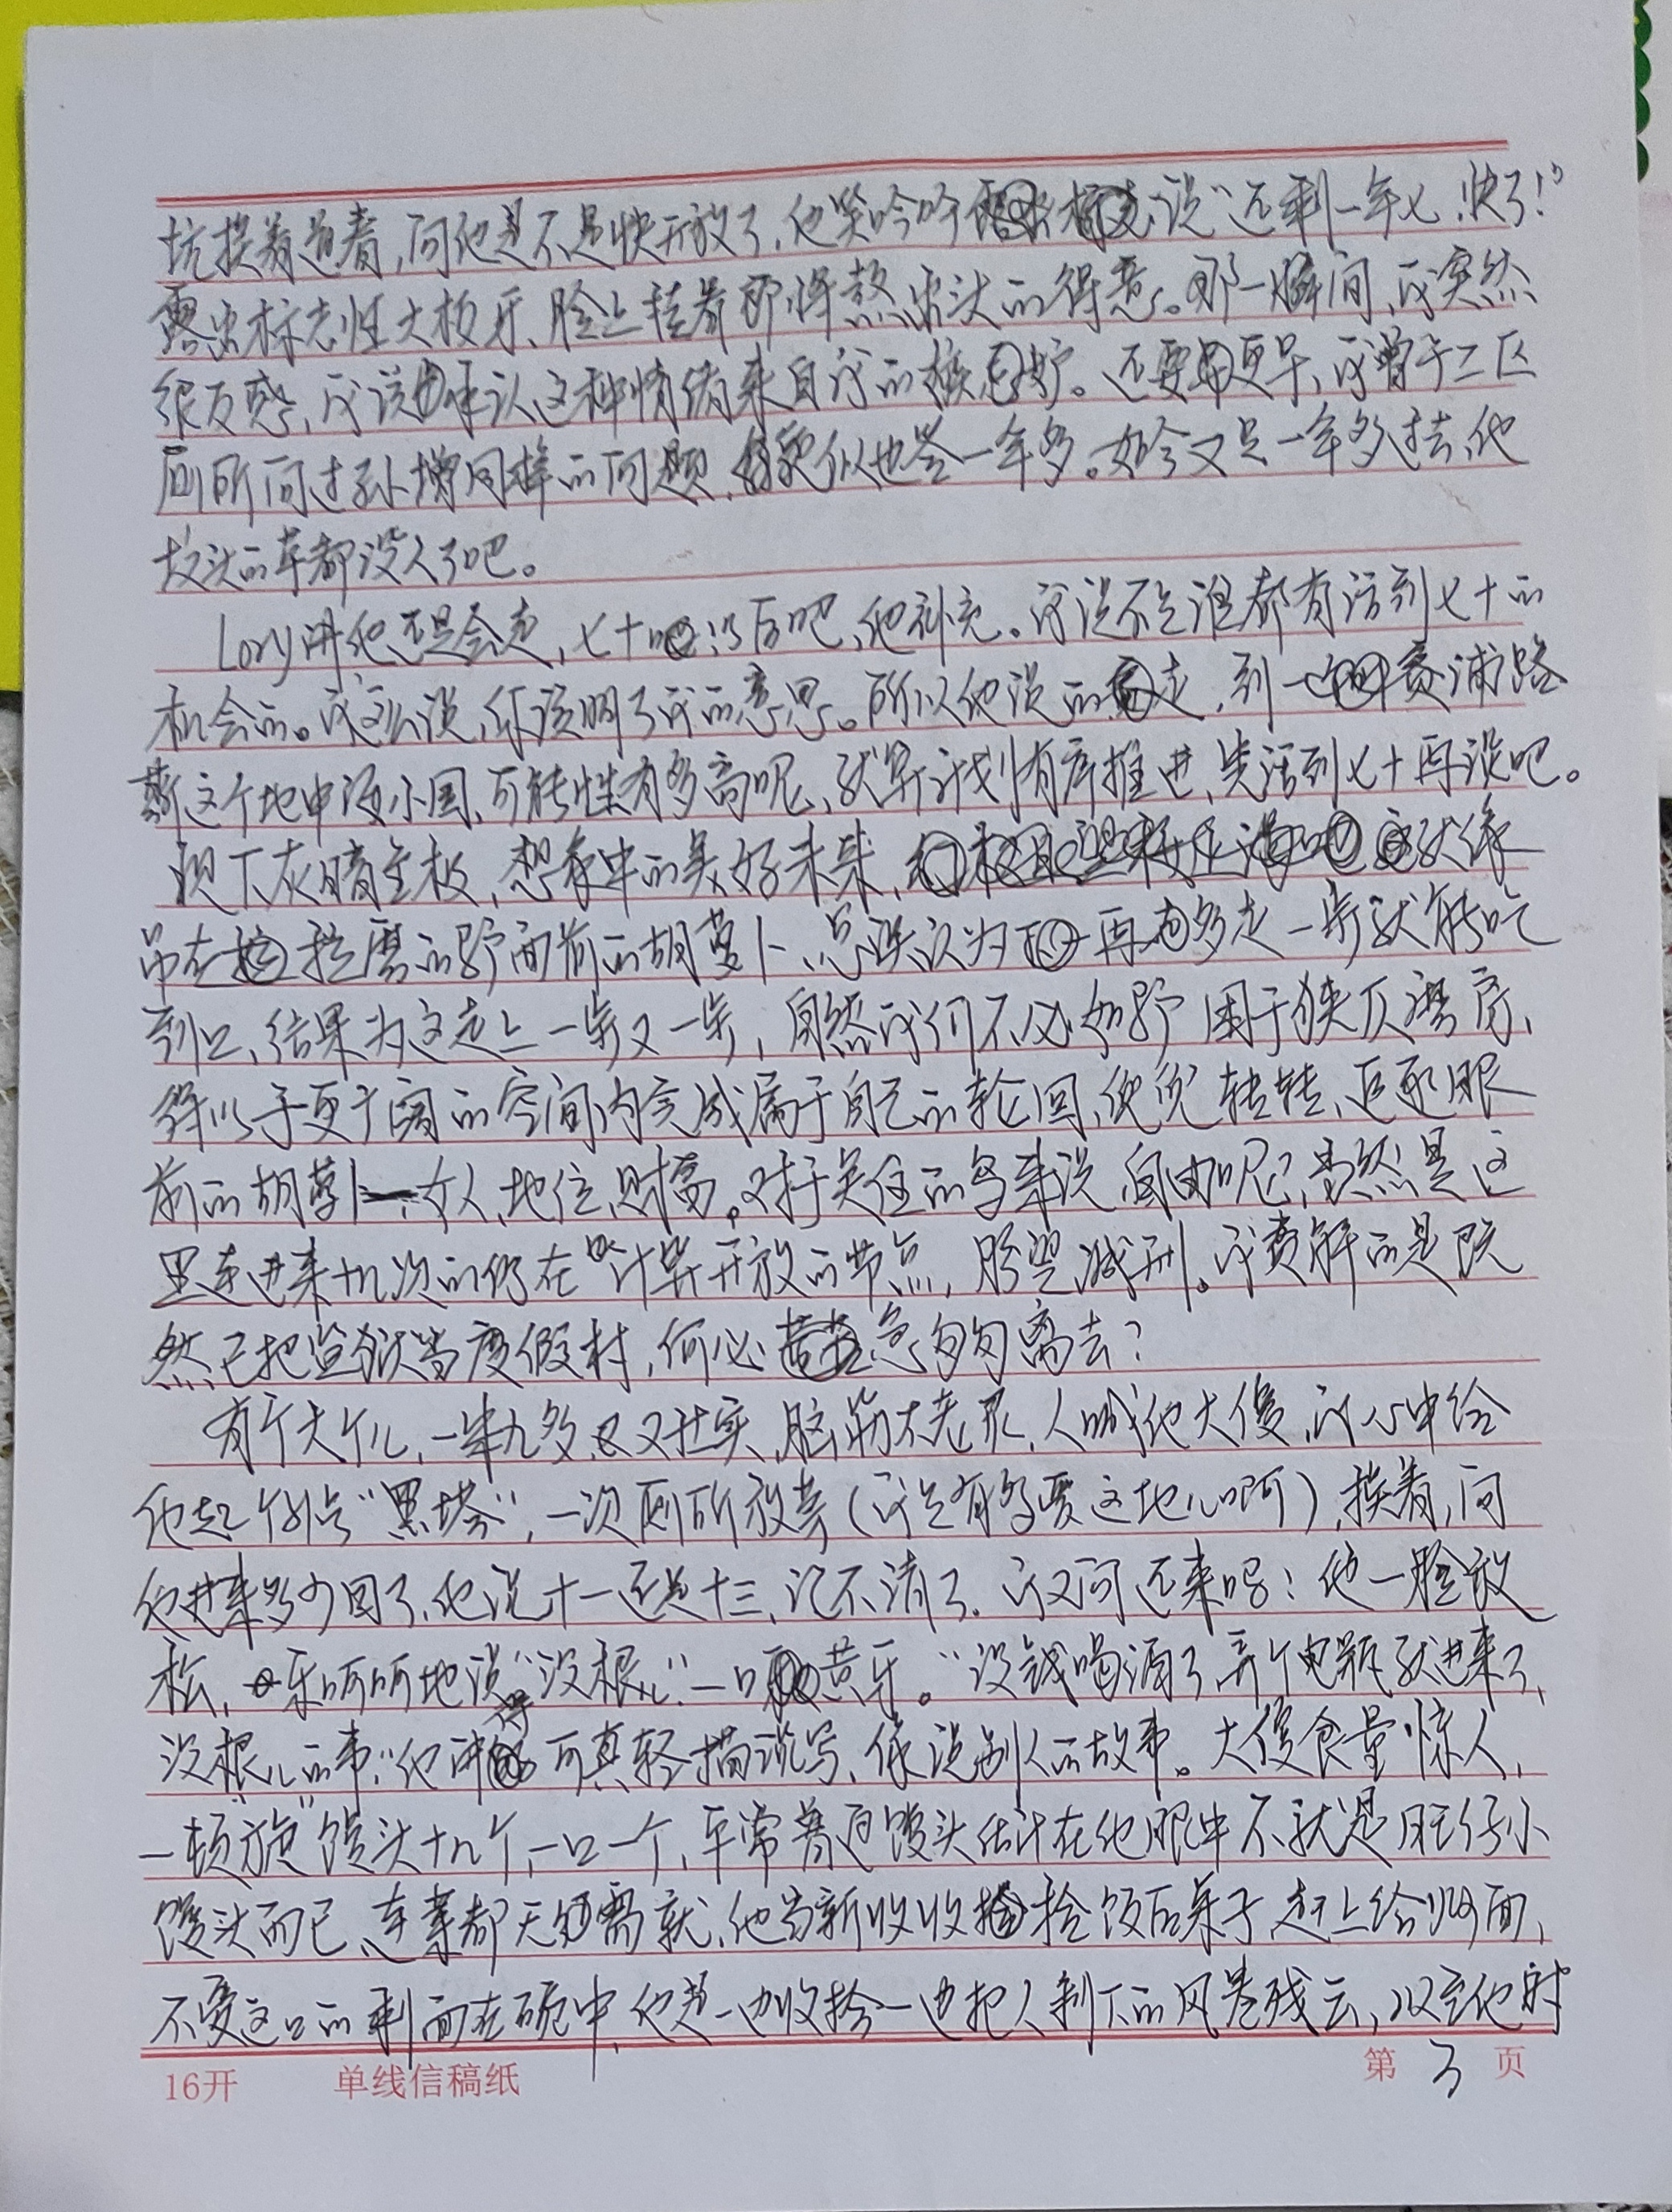 坑挨着道着,问他是不是快开放了,他笑吟吟说"还剩一年七,快了!"
露出标志性大板牙、脸上挂着即将熬出头的得意。那一瞬间,我突然
很反感,我该承认这种情绪来自我的嫉妒。还要更早,我曾于二区
厕所问过孙增同样的问题,貌似也答一年多。如今又是一年多过去,他
坟头的草都没人了吧。
Lory讲他还是会走,七十以后吧,他补充。我说不是谁都有活到七十的
机会的。我这么说,你该明了我的意思。所以他说的走,到赛浦路
斯这个地中海小国,可能性有多高呢,就算计划有序推进,先活到七十再说吧。
现下灰暗至极,想象中的美好未来,就像
吊在拉磨的驴面前的胡萝卜,总误以为再多走一步就能吃
到口、结果为这走上一步又一步,自然我们不必如驴困于狭仄磨房、
得以于更广阔的空间内完成属于自己的轮回,兜兜转转、追逐眼
前的胡萝卜—女人、地位、财富。对于关住的鸟来说,自由呢?虽然是这
里连进来十几次的仍在计算开放的节点,盼望减刑。我费解的是既
然已把监狱当度假村,何必急匆匆离去?
有个大个儿,一米九多又壮实,脑筋不老灵,人喊他大傻,我心中给
他起个别号"黑塔",一次厕所放茅(我是有多爱这地儿啊),挨着,问
他进来多少回了,他说十一还是十三,记不清了。我又问还来吗?他一脸放
松,乐呵呵地说"没根儿"一口黄牙。"没钱喝酒了弄个电瓶就进来了、
没根儿的事,"他讲得可真轻描淡写、像说别人的故事。大傻食量惊人,
一顿"旋"馒头十几个,一口一个,平常普通馒头估计在他眼中不就是旺仔小
馒头而已、连菜都无需就、他当新收收拾饭后桌子,赶上给做面,
不爱这口的剩面在碗中,他是一边收拾一边把人剩下的风卷残云,以至他时
16开 单线信稿纸 第 3 页